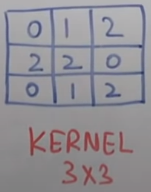 0 1 2
2 2 0
0 1 2
KERNEL
3x3